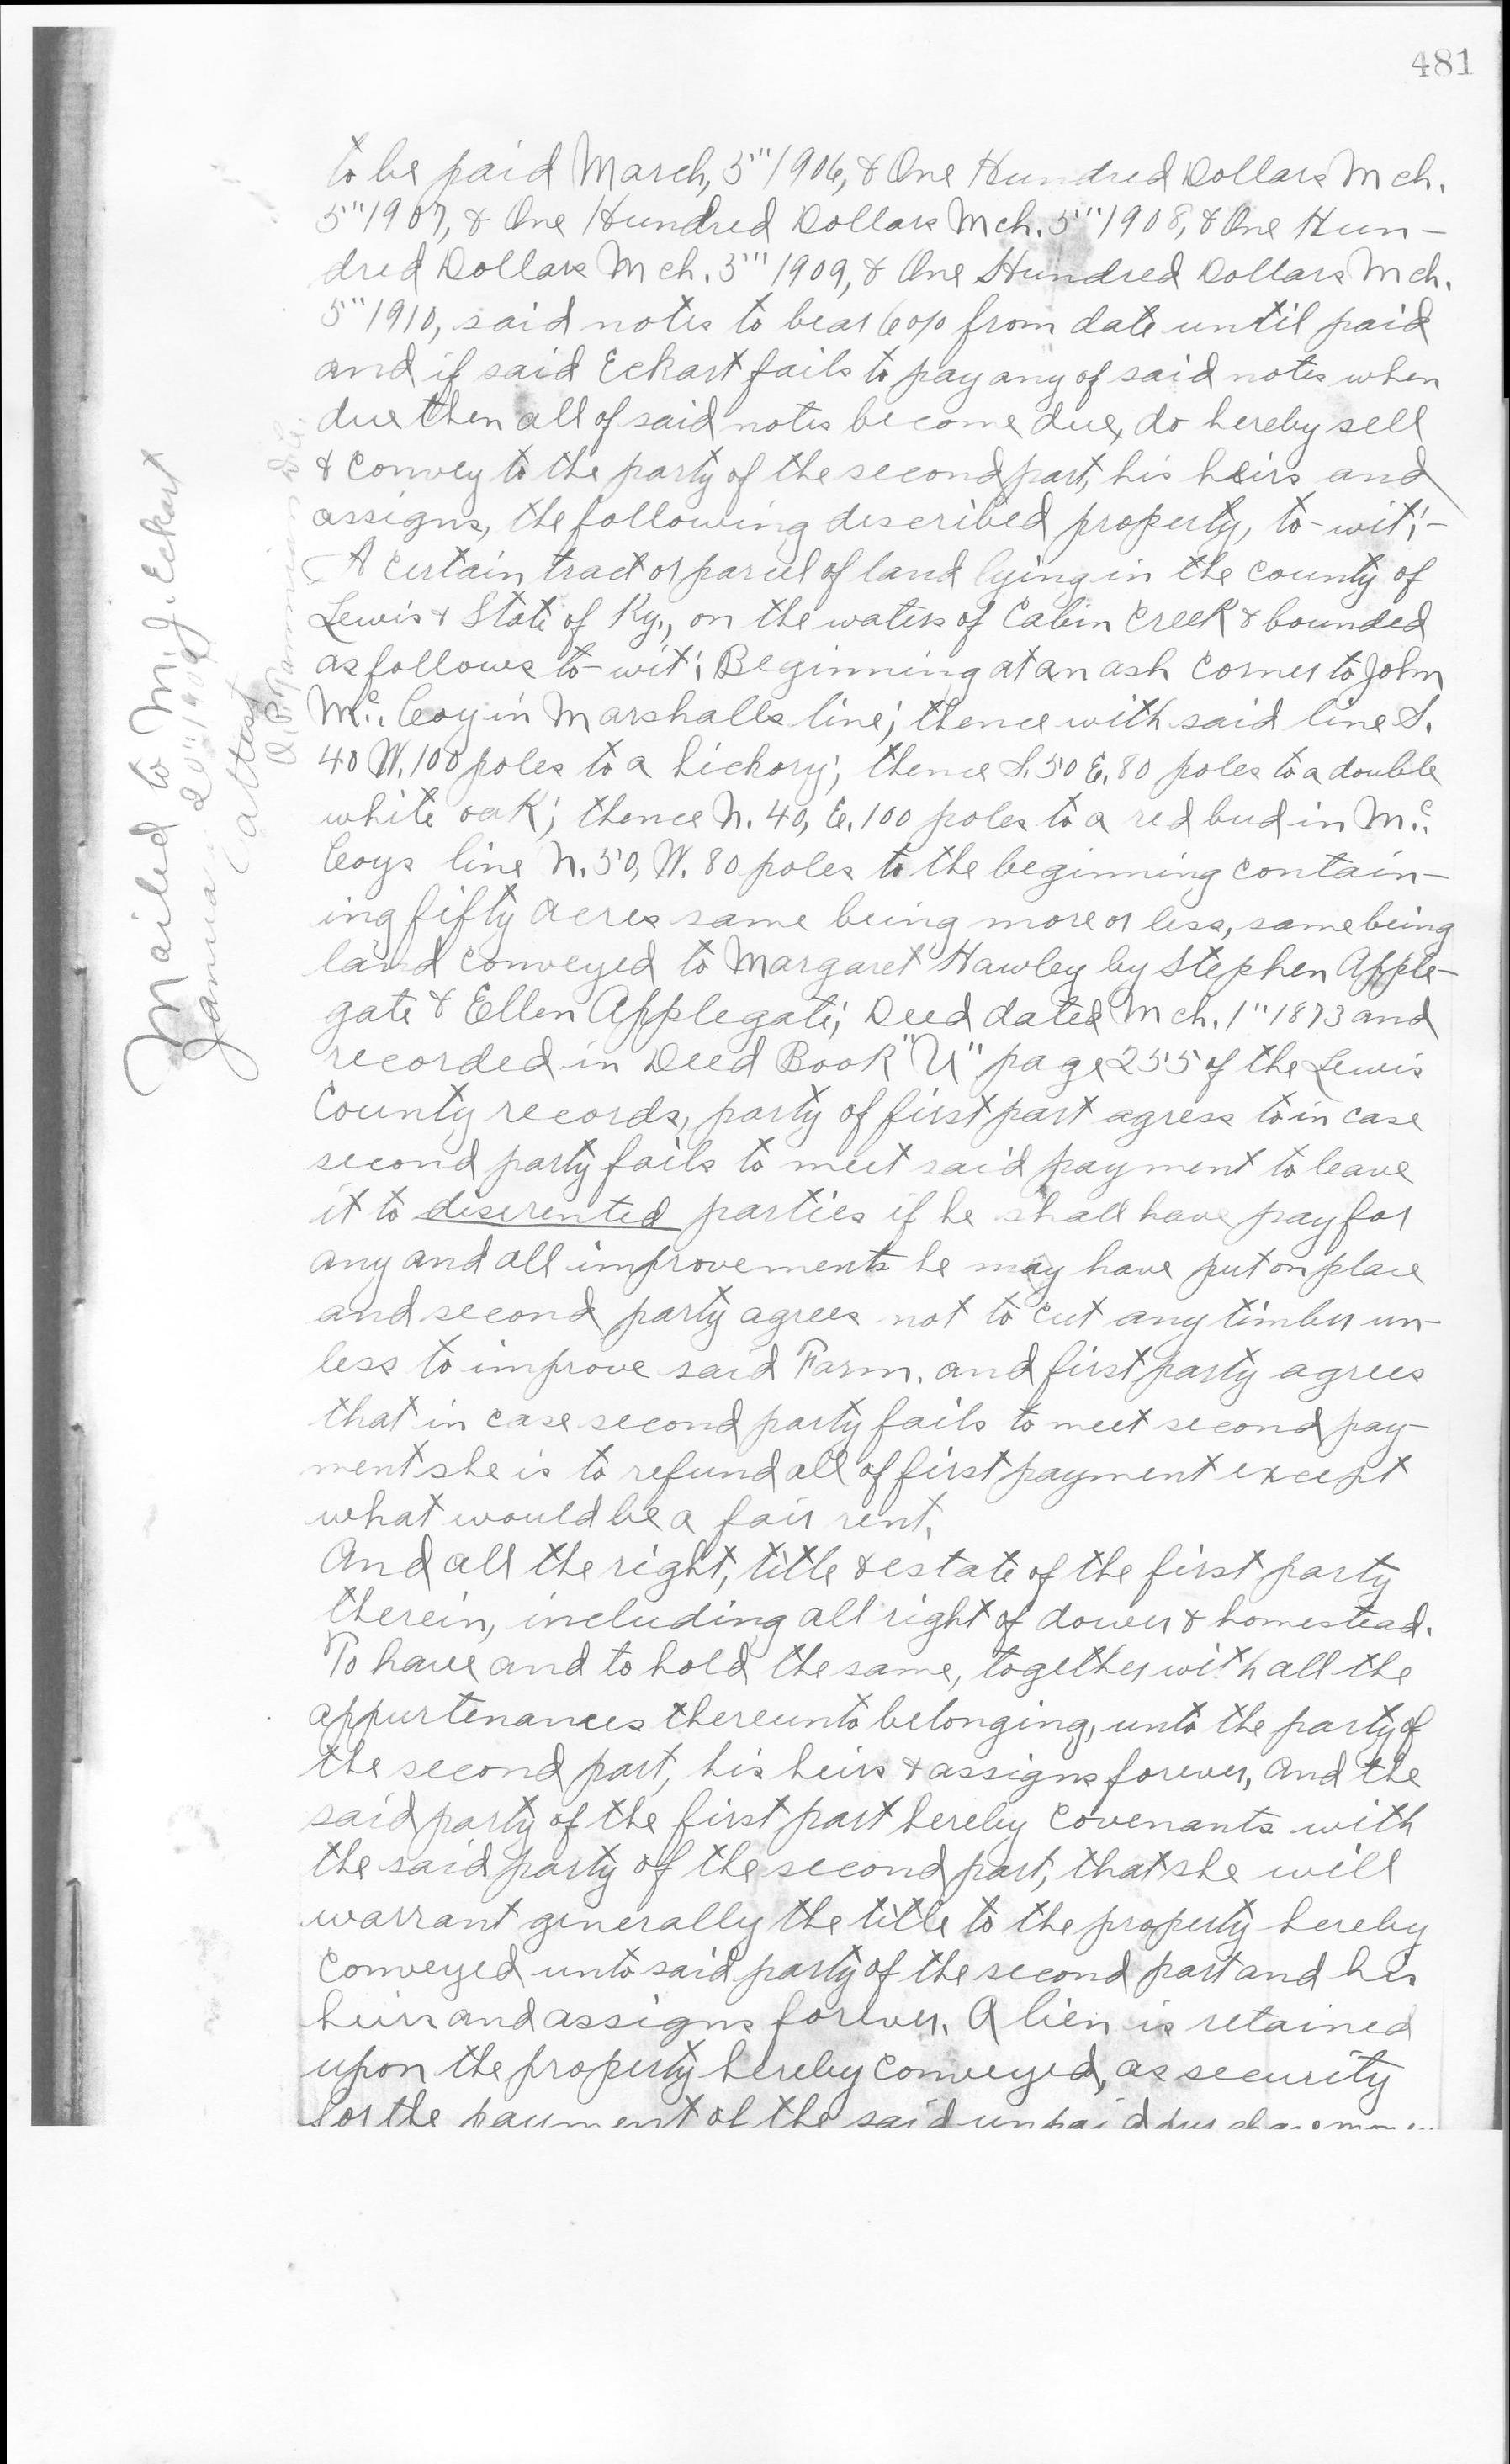 481
to be paid March, 5"1906, & One Hundred Dollars Mch.
5"1907, & One Hundred Dollars Mch. 5"'1908, & One Hun-
dred Dollars Mch. 5"'1909, & One Hundred Dollars Mch.
5"1910, said notes to bear 6% from date until paid
and if said Eckart fails to pay any of said notes when
due then all of said notes become due, do hereby sell
& convey to the party of the second part, his heirs and
assigns, the following described property, to-wit:-
A certain tract or parcel of land lying in the county of
Lewis & State of Ky., on the waters of Cabin Creek & bounded
as follows to-wit: Beginning at an ash corner to John
Mc. Coy in Marshalls line; thence with said line S.
40 W. 100 poles to a hickory; thence S. 50 E. 80 poles to a double
white oak; thence N. 40, E. 100 poles to a red bud in Mc.
Coys line N. 50, W. 80 poles to the beginning contain-
ing fifty acres same being more or less, same being
land conveyed to Margaret Hawley by Stephen Apple-
gate & Ellen Applegate; Deed dated Mch. 1" 1873 and
recorded in Deed Book "U" page 255 of the Lewis
County records, party of first part agress to in case
second party fails to meet said payment to leave
it to disérented parties if he shall have pay for
any and all improvements he may have put on place
and second party agrees not to cut any timber un-
less to improve said Farm. and first party agrees
that in case second party fails to meet second pay-
ment she is to refund all of first payment except
what would be a fair rent.
And all the right, title & estate of the first party
therein, including all right of dower & homestead.
To have and to hold the same, together with all the
appurtenances thereunto belonging, unto the party of
the second part, his heirs & assigns forever, And the
said party of the first part hereby covenants with
the said party of the second part, that she will
warrant generally the title to the property hereby
conveyed unto said party of the second part and his
heirs and assigns forever. A lien is retained
upon the property hereby conveyed, as security
for the payment of the said unpaid purchase money
Mailed to M. J. Eckart
Janua 20" 1909
attest